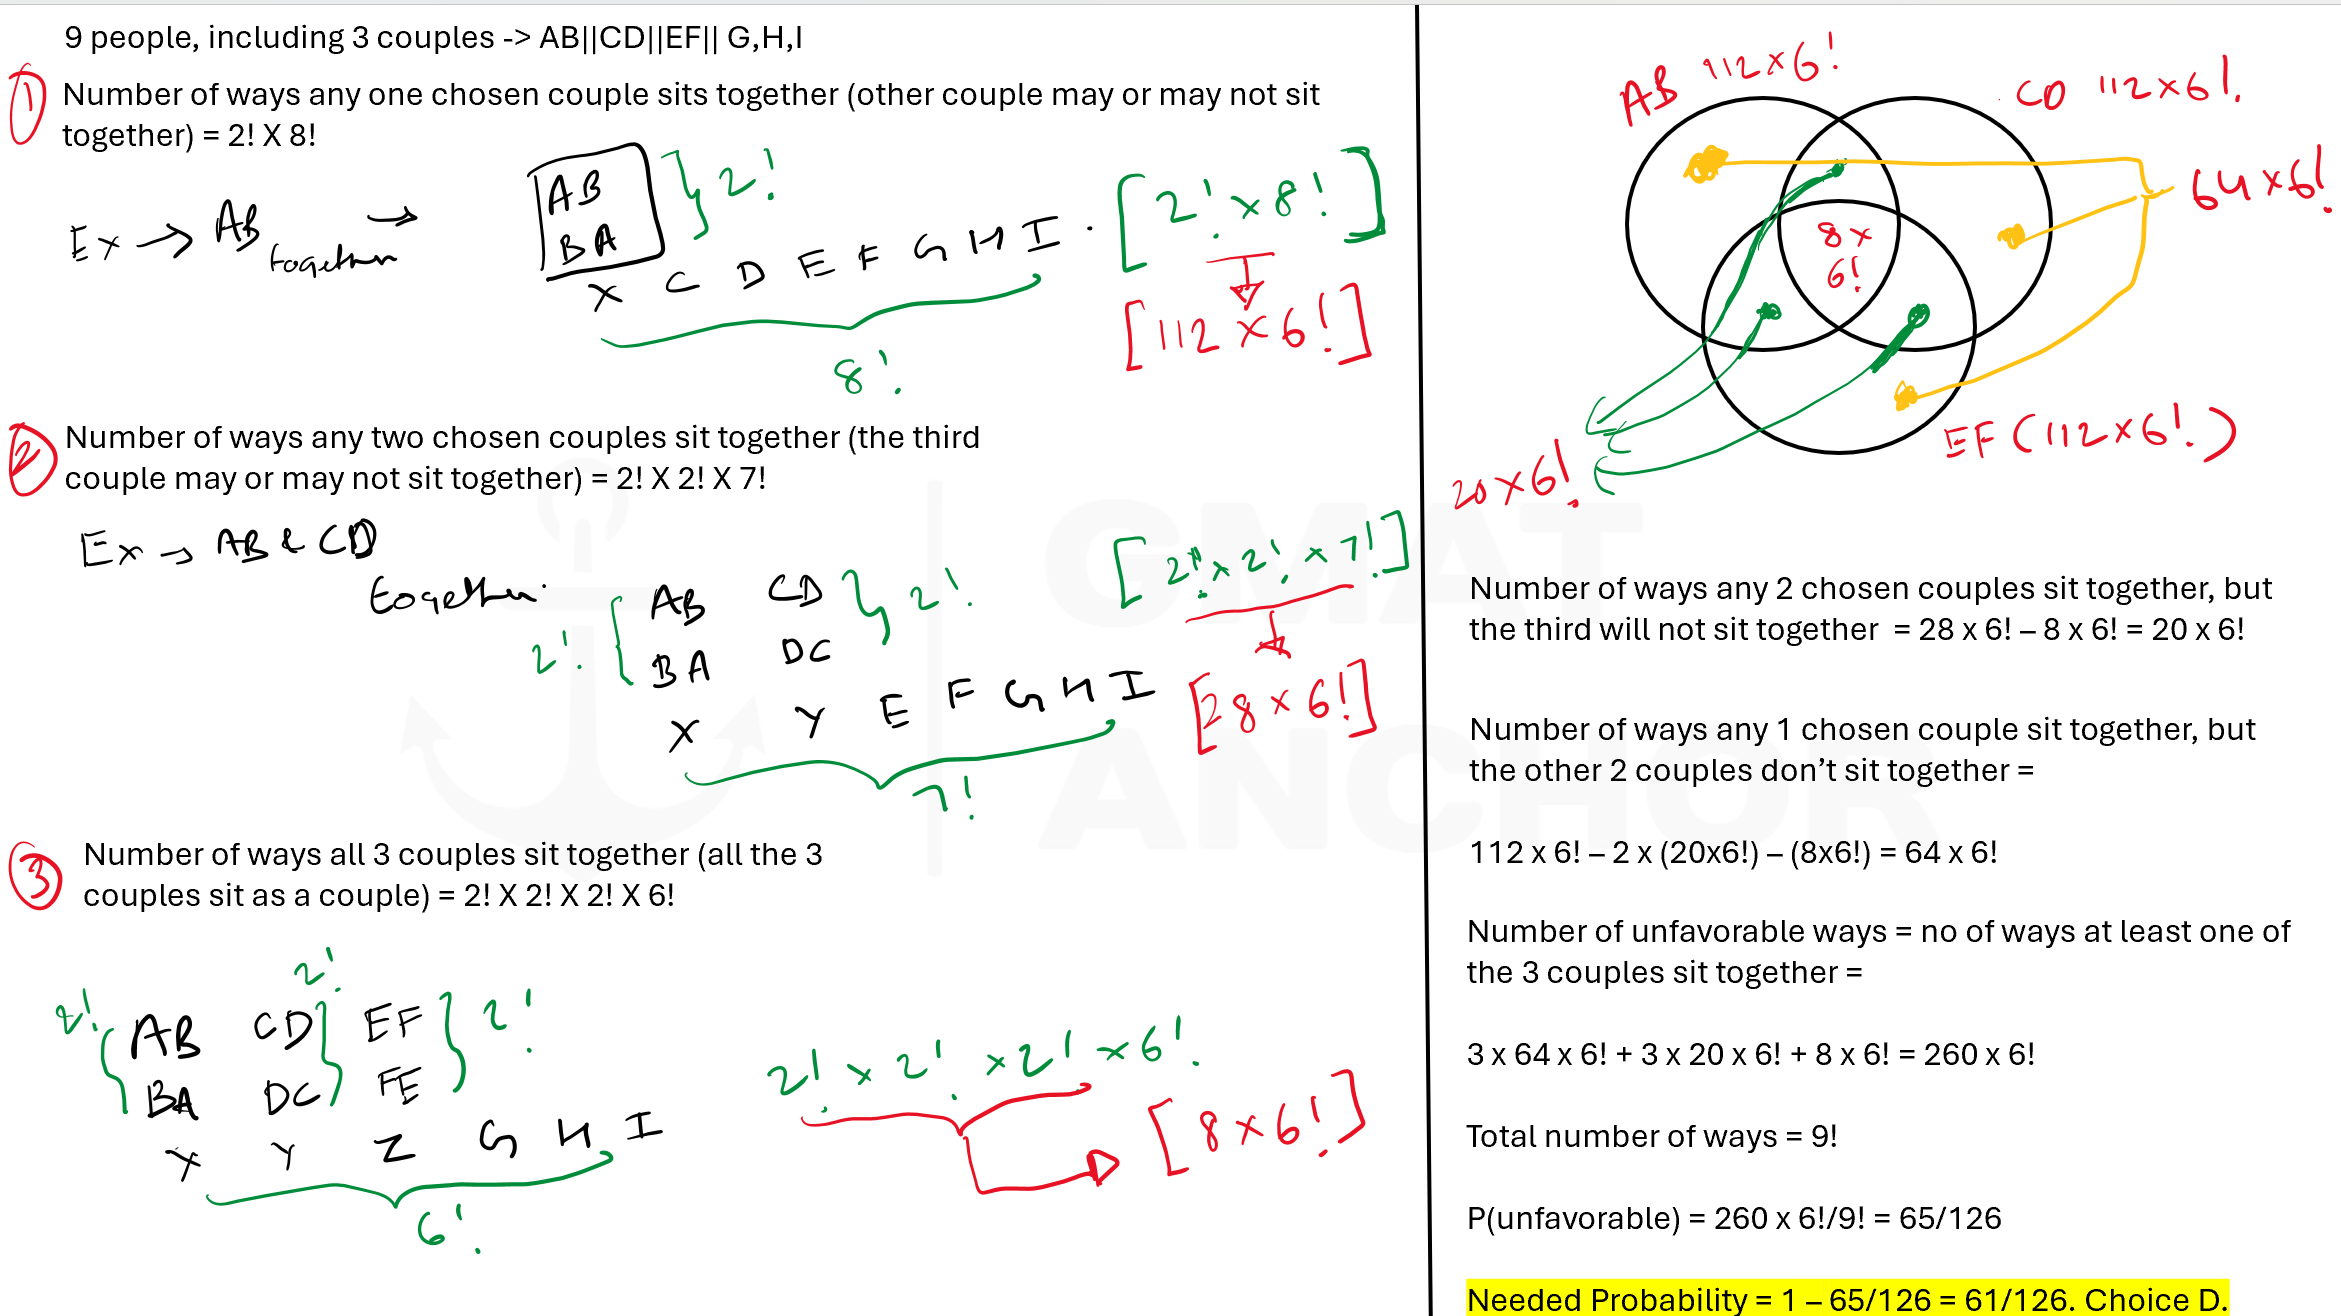 9 people, including 3 couples -> AB||CD||EF|| G,H,I
1
Number of ways any one chosen couple sits together (other couple may or may not sit
together) = 2! X 8!
Ex → AB together →
AB
BA
} 2!
X C D E F G H I .
8!
[2! × 8!]
[112 × 6!]
2
Number of ways any two chosen couples sit together (the third
couple may or may not sit together) = 2! X 2! X 7!
Ex → AB & CD
together.
2! { AB CD } 2!
BA DC
X Y E F G H I
7!
[2! × 2! × 7!]
[28 × 6!]
3
Number of ways all 3 couples sit together (all the 3
couples sit as a couple) = 2! X 2! X 2! X 6!
2!
2! { AB CD } EF } 2!
BA DC FE
X Y Z G H I
6!
2! × 2! × 2! × 6!
[8 × 6!]
AB 112×6!
CD 112×6!
64×6!
8×
6!
EF (112×6!)
20×6!
Number of ways any 2 chosen couples sit together, but
the third will not sit together = 28 x 6! – 8 x 6! = 20 x 6!
Number of ways any 1 chosen couple sit together, but
the other 2 couples don’t sit together =
112 x 6! – 2 x (20x6!) – (8x6!) = 64 x 6!
Number of unfavorable ways = no of ways at least one of
the 3 couples sit together =
3 x 64 x 6! + 3 x 20 x 6! + 8 x 6! = 260 x 6!
Total number of ways = 9!
P(unfavorable) = 260 x 6!/9! = 65/126
Needed Probability = 1 – 65/126 = 61/126. Choice D.
GMAT
ANCHOR